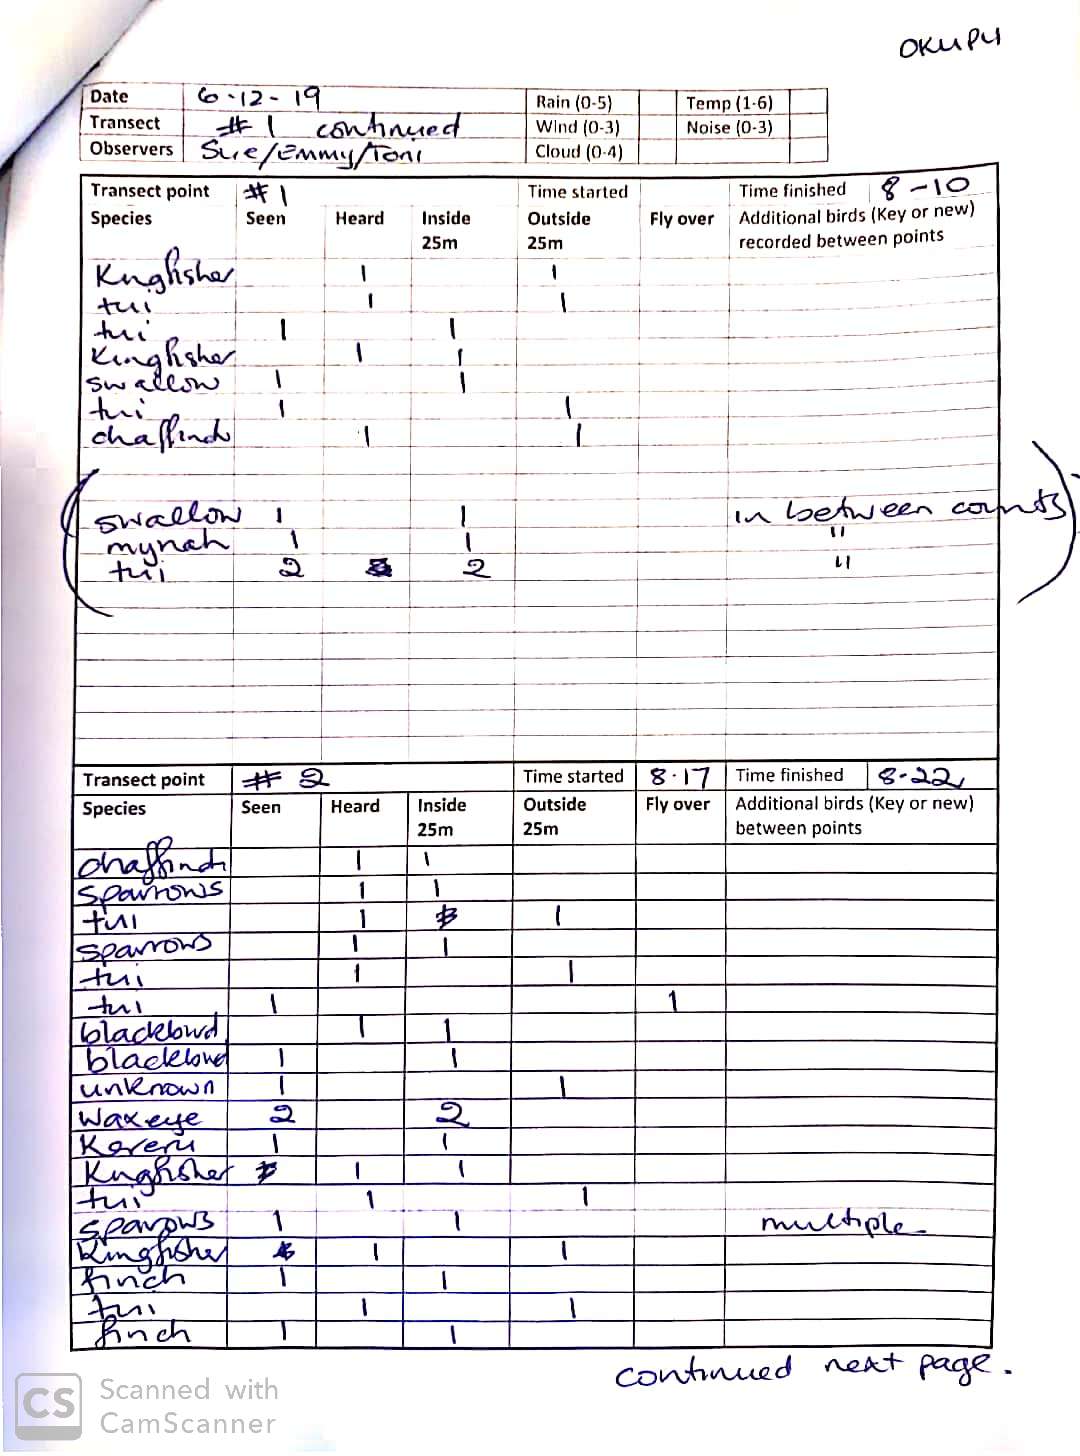 OKUPU
Date 6-12-19 Rain (0-5) Temp (1-6)
Transect #1 continued Wind (0-3) Noise (0-3)
Observers Sue/Emmy/Toni Cloud (0-4)
Transect point #1 Time started Time finished 8-10
Species Seen Heard Inside 25m Outside 25m Fly over Additional birds (Key or new) recorded between points
Kngfisher 1 1
tui 1 1
tui 1 1
Kingfisher 1 1
swallow 1 1
tui 1 1
chaffinch 1 1
swallow 1 1 in between counts
mynah 1 1 "
tui 2 2 "
Transect point #2 Time started 8.17 Time finished 8-22
Species Seen Heard Inside 25m Outside 25m Fly over Additional birds (Key or new) between points
chaffinch 1 1
sparrows 1 1
tui 1 1
sparrows 1 1
tui 1 1
tui 1 1
blackbird 1 1
blackbird 1 1
unknown 1 1
waxeye 2 2
Kereru 1 1
Kngfisher 1 1
tui 1 1
sparows 1 1 multiple
Kingfisher 1 1
finch 1 1
tui 1 1
finch 1 1
continued next page.
CS Scanned with
CamScanner